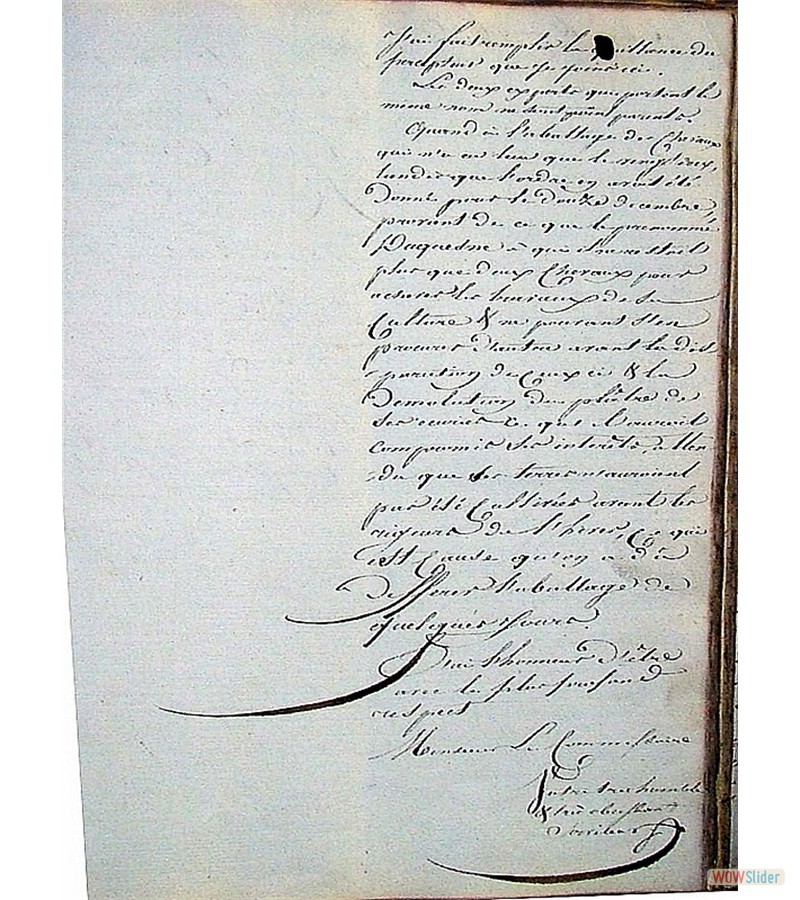 J'ai fait remplir la quittance du
que je joins ici.
Les deux experts qui portent le
même nom ne sont point parents.
Quand à l'abattage des Chevaux
qui n'a eu lieu que le
tandis que l'ordre en avoit été
Donné pour le douze décembre,
provient de ce que le prenommé
Duquesne à qui il ne restoit
plus que deux Chevaux pour
les travaux de sa
Culture & ne pouvant s'en
procurer d'autre avant la dis-
-parution de Ceux ci & la
Demolution du plâtre de
Ses ecuries ce qui
compromis Ses interêts, atten-
-du que Ses terres n'auroient
pas été Cultivées avant les
rigueurs de l'hiver, Ce qui
est Cause qu'on a dû
Differer l'abattage de
quelques Jours.
J'ai l'honneur d'être
avec le plus profond
respect
Monsieur Le Commissaire
Votre très humble
& très obeissant
Serviteur
WOWSlider